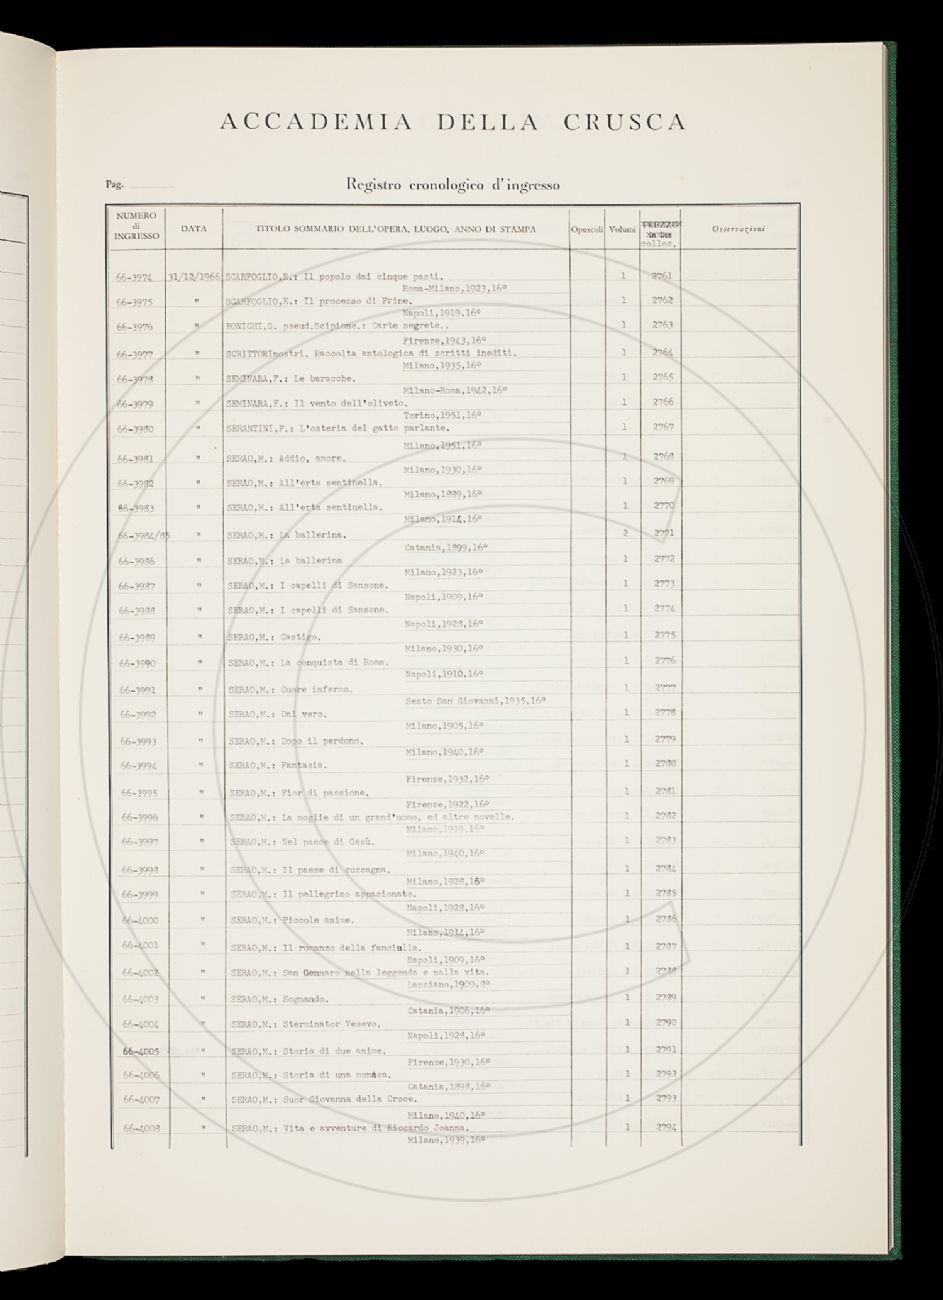 ACCADEMIA DELLA CRUSCA
Pag. Registro cronologico d'ingresso
NUMERO di INGRESSO DATA TITOLO SOMMARIO DELL'OPERA, LUOGO, ANNO DI STAMPA Opuscoli Volumi PREZZO colloc. Osservazioni
66-3974 31/12/1966 SCARFOGLIO,E.: Il popolo dai cinque pasti. 1 2761
Roma-Milano,1923,16º
66-3975 " SCARFOGLIO,E.: Il processo di Frine. 1 2762
Napoli,1919,16º
66-3976 " BONICHI,G. pseud.Scipione.: Carte segrete.. 1 2763
Firenze,1943,16º
66-3977 " SCRITTORInostri. Raccolta antologica di scritti inediti. 1 2764
Milano,1935,16º
66-3978 " SEMINARA,F.: Le baracche. 1 2765
Milano-Roma,1942,16º
66-3979 " SEMINARA,F.: Il vento dell'oliveto. 1 2766
Torino,1951,16º
66-3980 " SERANTINI,F.: L'osteria del gatto parlante. 1 2767
Milano,1951,16º
66-3981 " SERAO,M.: Addio, amore. 1 2768
Milano,1930,16º
66-3982 " SERAO,M.: All'erta sentinella. 1 2769
Milano,1889,16º
66-3983 " SERAO,M.: All'erta sentinella. 1 2770
Milano,1914,16º
66-3984/85 " SERAO,M.: La ballerina. 2 2771
Catania,1899,16º
66-3986 " SERAO,M.: La ballerina 1 2772
Milano,1923,16º
66-3987 " SERAO,M.: I capelli di Sansone. 1 2773
Napoli,1909,16º
66-3988 " SERAO,M.: I capelli di Sansone. 1 2774
Napoli,1928,16º
66-3989 " SERAO,M.: Castigo. 1 2775
Milano,1930,16º
66-3990 " SERAO,M.: La conquista di Roma. 1 2776
Napoli,1910,16º
66-3991 " SERAO,M.: Cuore infermo. 1 2777
Sesto San Giovanni,1935,16º
66-3992 " SERAO,M.: Dal vero. 1 2778
Milano,1905,16º
66-3993 " SERAO,M.: Dopo il perdono. 1 2779
Milano,1940,16º
66-3994 " SERAO,M.: Fantasia. 1 2780
Firenze,1932,16º
66-3995 " SERAO,M.: Fior di passione. 1 2781
Firenze,1922,16º
66-3996 " SERAO,M.: La moglie di un grand'uomo, ed altre novelle. 1 2782
Milano,1919,16º
66-3997 " SERAO,M.: Nel paese di Gesù. 1 2783
Milano,1940,16º
66-3998 " SERAO,M.: Il paese di cuccagna. 1 2784
Milano,1928,16º
66-3999 " SERAO,M.: Il pellegrino appasionato. 1 2785
Napoli,1928,16º
66-4000 " SERAO,M.: Piccole anime. 1 2786
Milano,1914,16º
66-4001 " SERAO,M.: Il romanzo della fanciulla. 1 2787
Napoli,1909,16º
66-4002 " SERAO,M.: San Gennaro nella leggenda e nalla vita. 1 2788
Lanciano,1909,8º
66-4003 " SERAO,M.: Sognando. 1 2789
Catania,1906,16º
66-4004 " SERAO,M.: Sterminator Vesevo. 1 2790
Napoli,1928,16º
66-4005 " SERAO,M.: Storia di due anime. 1 2791
Firenze,1930,16º
66-4006 " SERAO,M.: Storia di una monaca. 1 2792
Catania,1898,16º
66-4007 " SERAO,M.: Suor Giovanna della Croce. 1 2793
Milano,1940,16º
66-4008 " SERAO,M.: Vita e avventure di Riccardo Joanna. 1 2794
Milano,1939,16º